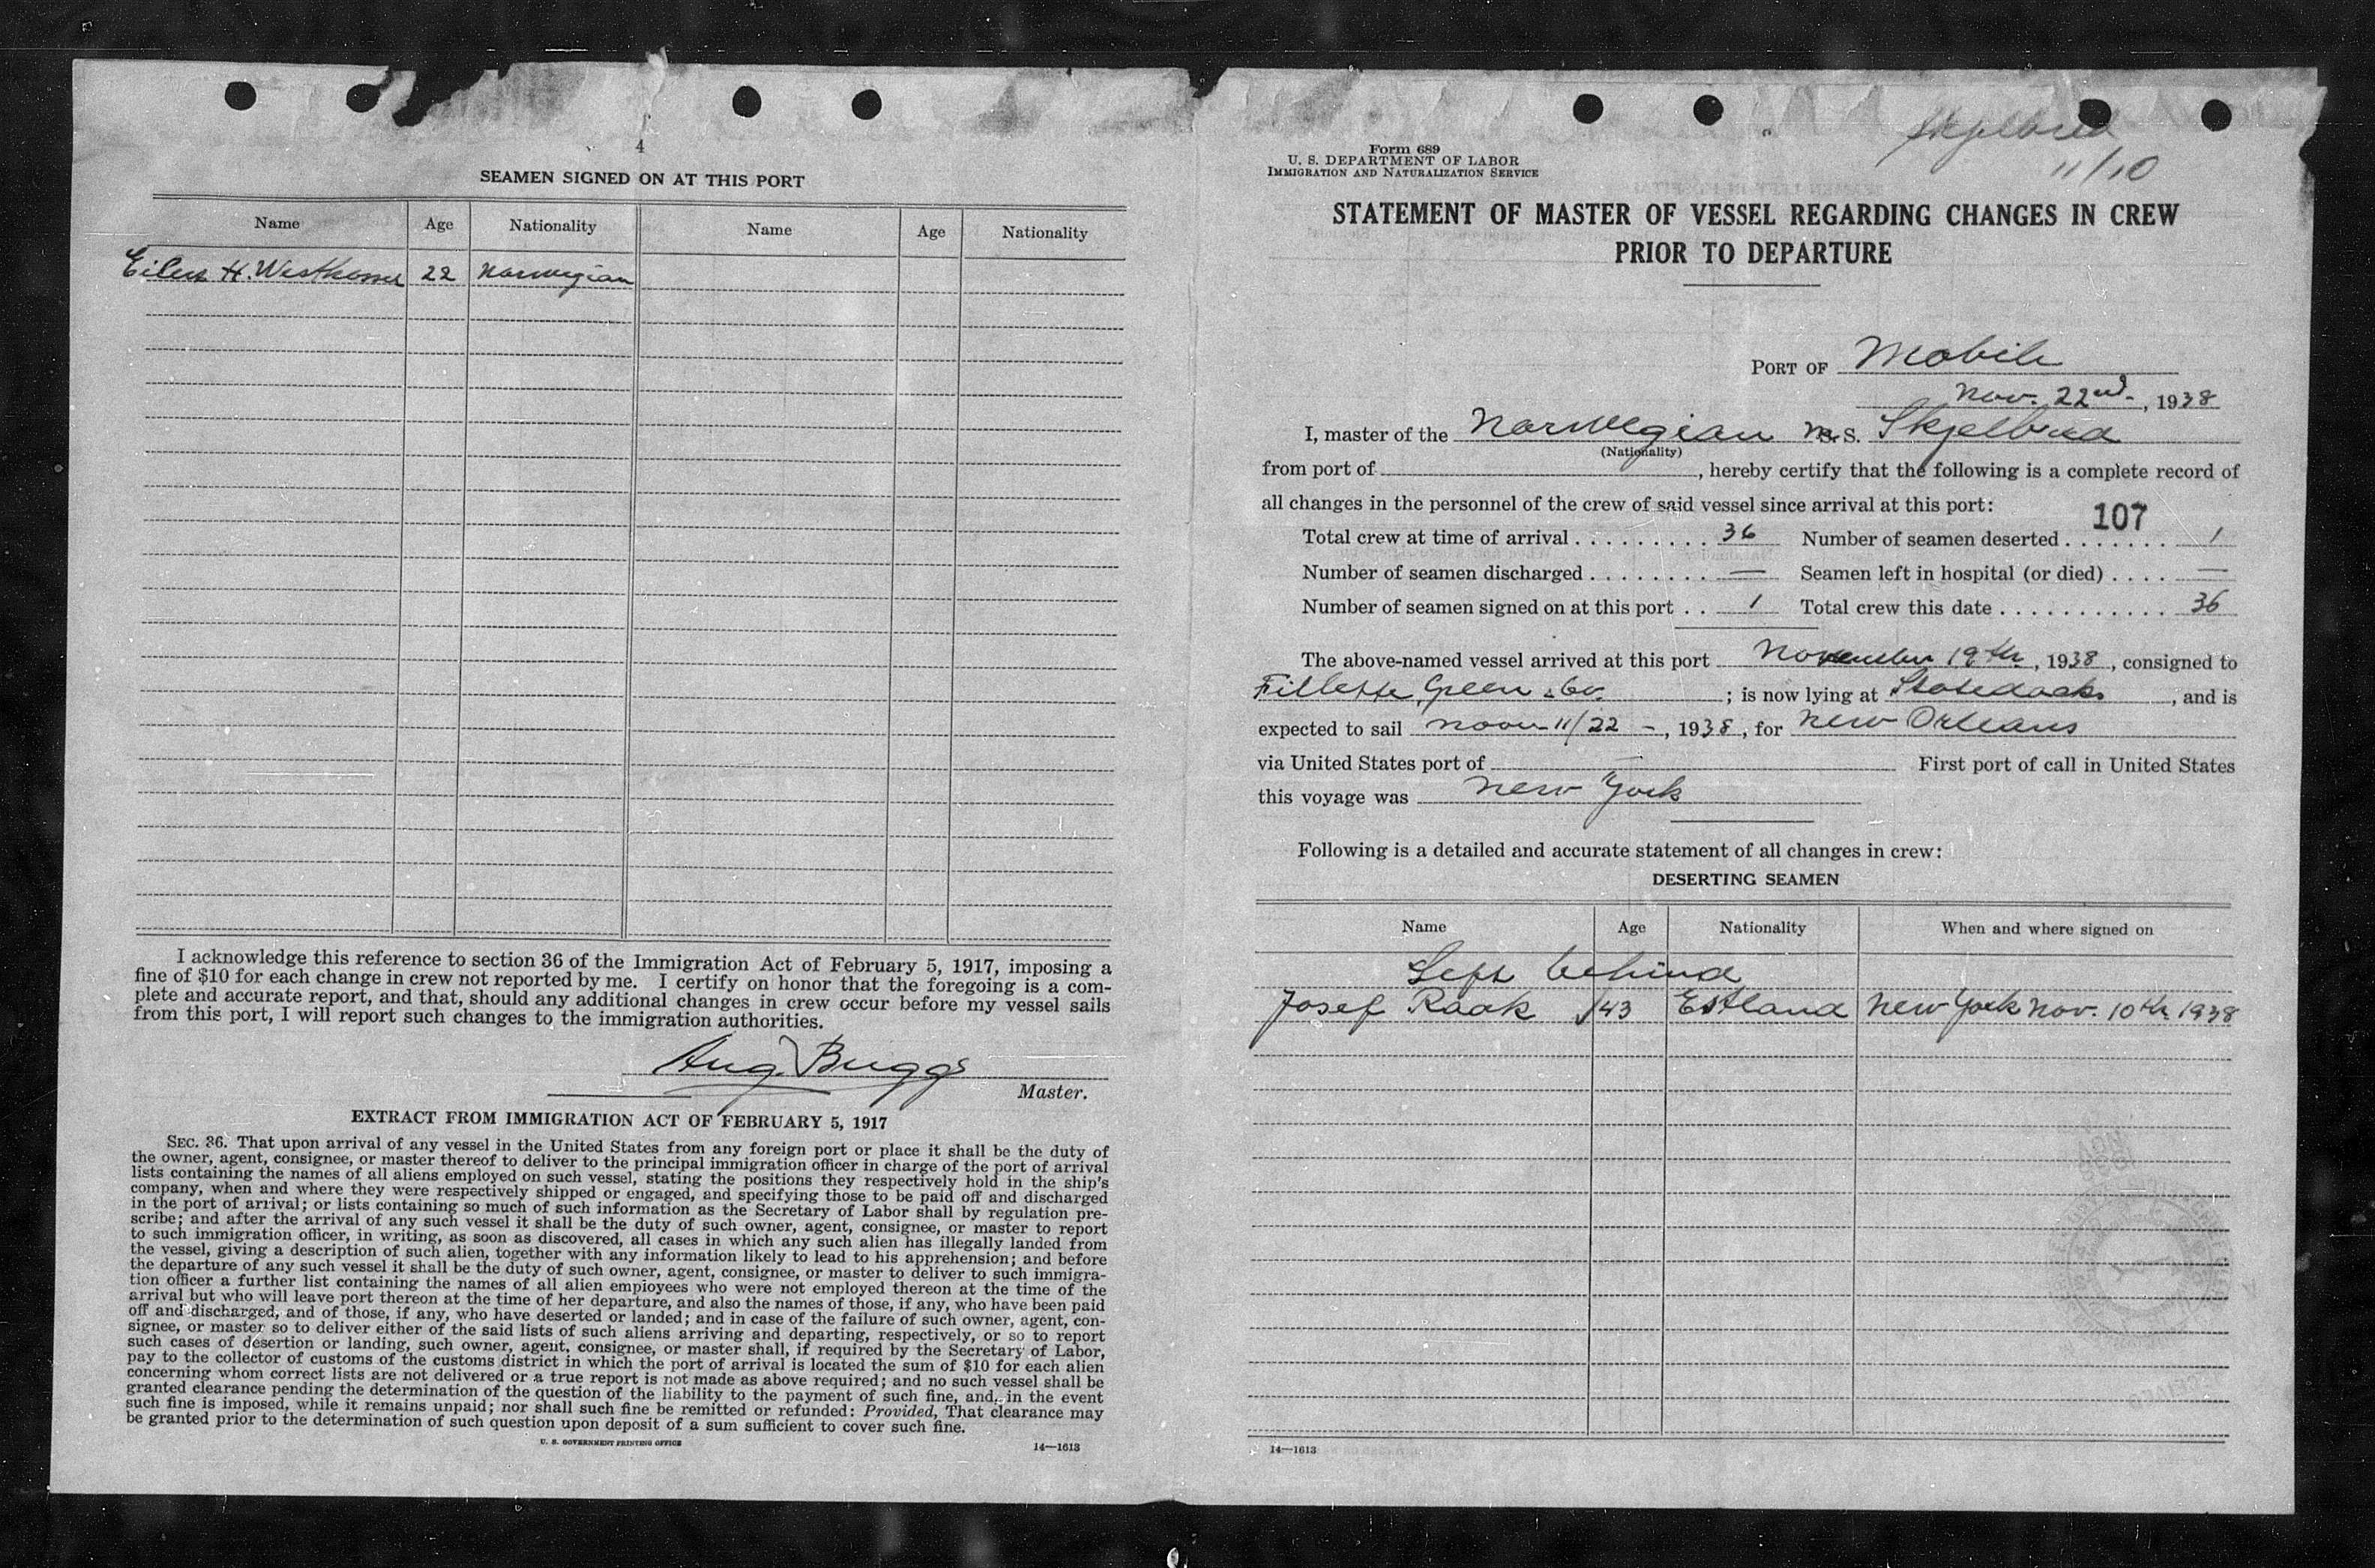 4
SEAMEN SIGNED ON AT THIS PORT
Name Age Nationality Name Age Nationality
H. 22 Norwegian
I acknowledge this reference to section 36 of the Immigration Act of February 5, 1917, imposing a
fine of $10 for each change in crew not reported by me. I certify on honor that the foregoing is a com-
plete and accurate report, and that, should any additional changes in crew occur before my vessel sails
from this port, I will report such changes to the immigration authorities.
Aug. Bugge
Master.
EXTRACT FROM IMMIGRATION ACT OF FEBRUARY 5, 1917
SEC. 36. That upon arrival of any vessel in the United States from any foreign port or place it shall be the duty of
the owner, agent, consignee, or master thereof to deliver to the principal immigration officer in charge of the port of arrival
lists containing the names of all aliens employed on such vessel, stating the positions they respectively hold in the ship's
company, when and where they were respectively shipped or engaged, and specifying those to be paid off and discharged
in the port of arrival; or lists containing so much of such information as the Secretary of Labor shall by regulation pre-
scribe; and after the arrival of any such vessel it shall be the duty of such owner, agent, consignee, or master to report
to such immigration officer, in writing, as soon as discovered, all cases in which any such alien has illegally landed from
the vessel, giving a description of such alien, together with any information likely to lead to his apprehension; and before
the departure of any such vessel it shall be the duty of such owner, agent, consignee, or master to deliver to such immigra-
tion officer a further list containing the names of all alien employees who were not employed thereon at the time of the
arrival but who will leave port thereon at the time of her departure, and also the names of those, if any, who have been paid
off and discharged, and of those, if any, who have deserted or landed; and in case of the failure of such owner, agent, con-
signee, or master so to deliver either of the said lists of such aliens arriving and departing, respectively, or so to report
such cases of desertion or landing, such owner, agent, consignee, or master shall, if required by the Secretary of Labor,
pay to the collector of customs of the customs district in which the port of arrival is located the sum of $10 for each alien
concerning whom correct lists are not delivered or a true report is not made as above required; and no such vessel shall be
granted clearance pending the determination of the question of the liability to the payment of such fine, and, in the event
such fine is imposed, while it remains unpaid; nor shall such fine be remitted or refunded: Provided, That clearance may
be granted prior to the determination of such question upon deposit of a sum sufficient to cover such fine.
U. S. GOVERNMENT PRINTING OFFICE 14—1613
Skjelbred
11/10
Form 689
U. S. DEPARTMENT OF LABOR
IMMIGRATION AND NATURALIZATION SERVICE
STATEMENT OF MASTER OF VESSEL REGARDING CHANGES IN CREW
PRIOR TO DEPARTURE
PORT OF Mobile
Nov. 22nd, 1938
I, master of the Norwegian M.S. Skjelbred
(Nationality)
from port of , hereby certify that the following is a complete record of
all changes in the personnel of the crew of said vessel since arrival at this port:
107
Total crew at time of arrival 36 Number of seamen deserted 1
Number of seamen discharged — Seamen left in hospital (or died) —
Number of seamen signed on at this port 1 Total crew this date 36
The above-named vessel arrived at this port November 19th, 1938, consigned to
Fillette Green & Co. ; is now lying at Statedocks, and is
expected to sail noon 11/22 -, 1938, for New Orleans
via United States port of — First port of call in United States
this voyage was New York
Following is a detailed and accurate statement of all changes in crew:
DESERTING SEAMEN
Name Age Nationality When and where signed on
Left behind
Josef Raak 43 Estland New York Nov. 10th 1938
14—1613